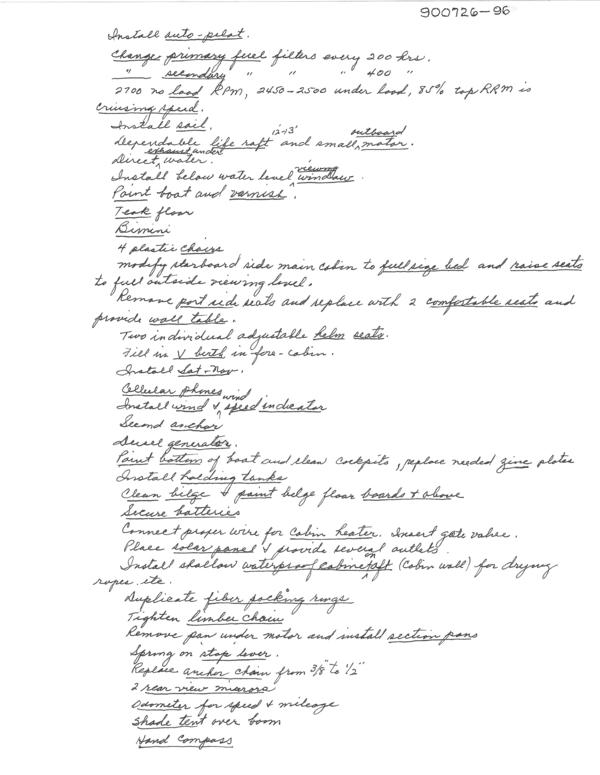 900726-96
Install auto-pilot.
Change primary fuel filters every 200 hrs.
" secondary " " " 400 "
2700 no load RPM, 2450-2500 under load, 85% top RRM is
cruising speed.
Install sail.
Dependable life raft 12-13' and small outboard motor.
Direct exhaust under water.
Install below water level viewing window.
Paint boat and varnish.
Teak floor
Bimini
4 plastic chairs
modify starboard side main cabin to full size bed and raise seats
to full outside viewing level.
Remove port side seats and replace with 2 comfortable seats and
provide wall table.
Two individual adjustable helm seats.
Fill in V berth in fore-cabin.
Install Sat-Nav.
Cellular phones
Install wind & wind speed indicator
Second anchor
Diesel generator.
Paint bottom of boat and clean cockpits, replace needed zinc plates
Install holding tanks
Clean bilge & paint belge floor boards & above
Secure batteries
Connect proper wire for cabin heater. Insert gate valve.
Place solar panel & provide several outlets.
Install shallow waterproof cabinet on aft (cabin wall) for drying
ropes. etc.
Duplicate fiber packing rings
Tighten limber chain
Remove pan under motor and install section pans
Spring on stop lever.
Replace anchor chain from 3/8" to 1/2"
2 rear view mirrors
Odometer for speed & mileage
Shade tent over boom
Hand Compass